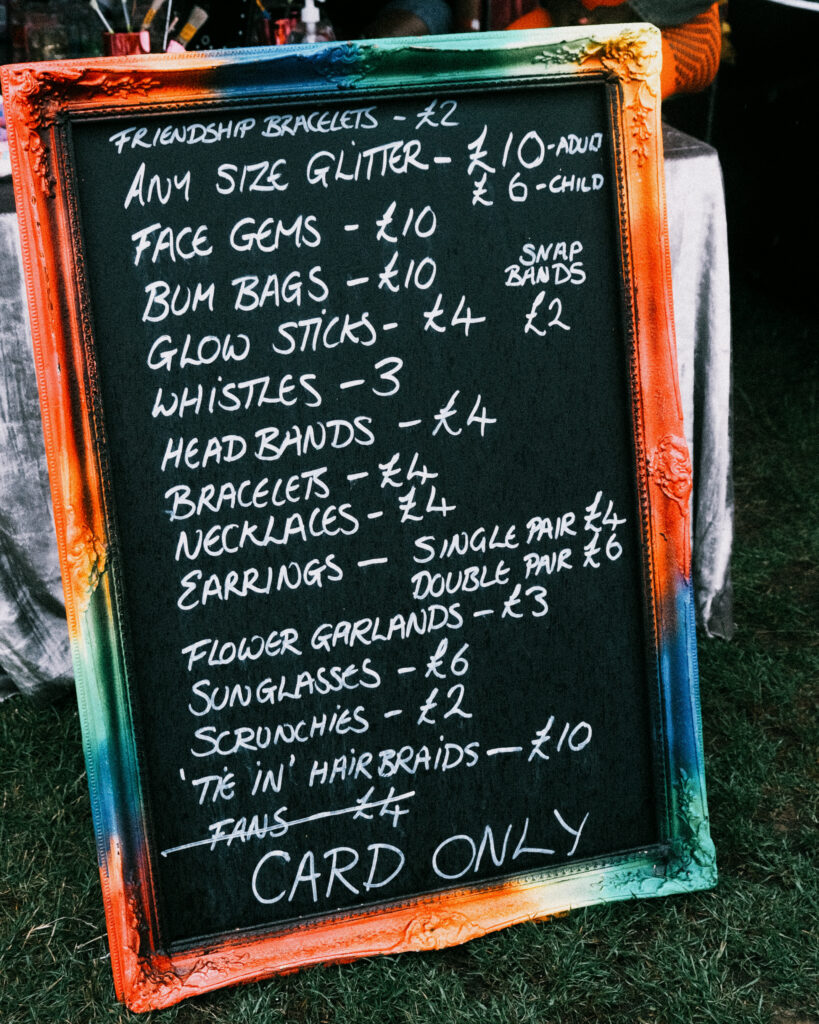 FRIENDSHIP BRACELETS - £2
ANY SIZE GLITTER - £10 - ADULT
£6 - CHILD
FACE GEMS - £10
BUM BAGS - £10
SNAP
BANDS
£2
GLOW STICKS - £4
WHISTLES - 3
HEADBANDS - £4
BRACELETS - £4
NECKLACES - £4
EARRINGS - SINGLE PAIR £4
DOUBLE PAIR £6
FLOWER GARLANDS - £3
SUNGLASSES - £6
SCRUNCHIES - £2
'TIE IN' HAIR BRAIDS - £10
FANS - £4
CARD ONLY